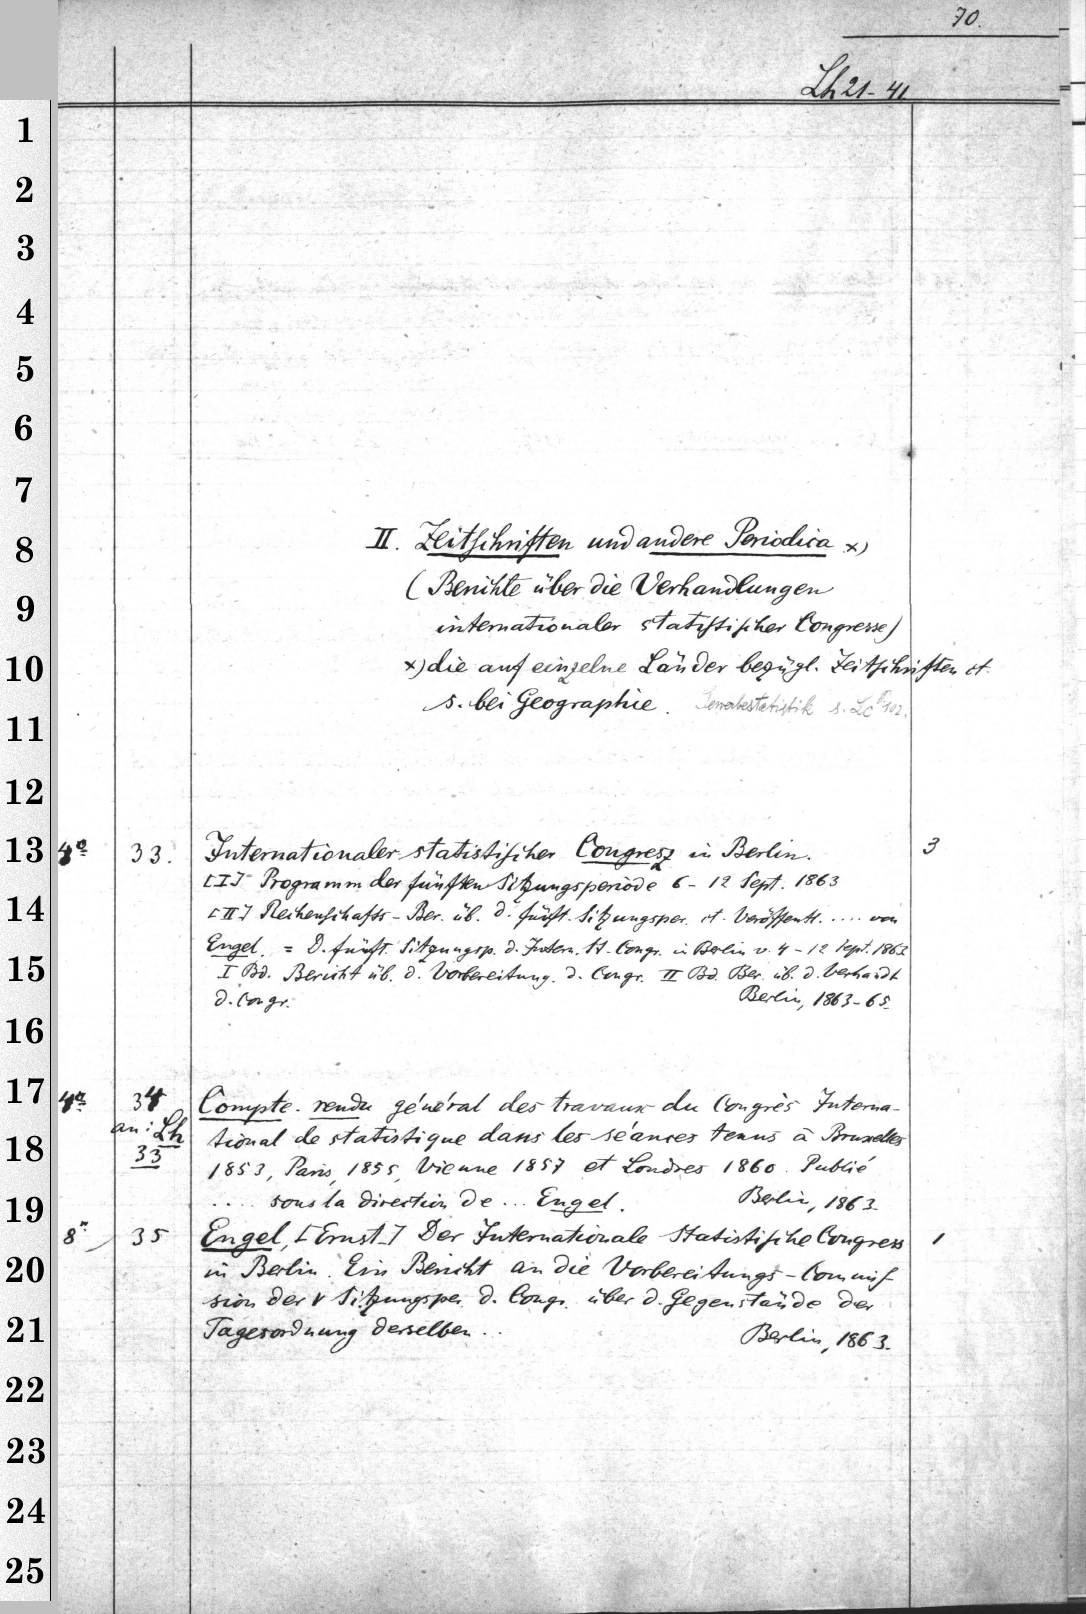 70.
Lh 21-41
1
2
3
4
5
6
7
8
II. Zeitschriften und andere Periodica x)
9
(Berichte über die Verhandlungen
internationaler statistischer Congresse)
10
x) die auf einzelne Länder bezügl. Zeitschriften et
s. bei Geographie. Gewerbestatistik s. Lc 102.
11
12
13
4º 33. Internationaler statistischer Congresz in Berlin. 3
[I] Programm der fünften Sitzungsperiode 6-12 Sept. 1863
14
[II] Rechenschafts-Ber. üb. d. fünft. Sitzungsper. et Veröffentl. ..... von
Engel. = D. fünft. Sitzungsp. d. Intern. st. Congr. in Berlin v. 4-12 Sept. 1863
15
I Bd. Bericht üb. d. Vorbereitung. d. Congr. II Bd. Ber. üb. d. Verhandl.
d. Congr. Berlin, 1863-65.
16
17
4º 34 Compte-rendu général des travaux du Congrès Interna-
an: Lh 33
18
tional de statistique dans les séances tenus à Bruxelles
1853, Paris, 1855, Vienne 1857 et Londres 1860. Publié
19
.... sous la direction de ... Engel. Berlin, 1863.
8º 35 Engel, [Ernst] Der Internationale Statistische Congress 1
20
in Berlin. Ein Bericht an die Vorbereitungs-Commis-
sion der V Sitzungsper. d. Congr. über d. Gegenstände der
21
Tagesordnung derselben.. Berlin, 1863.
22
23
24
25